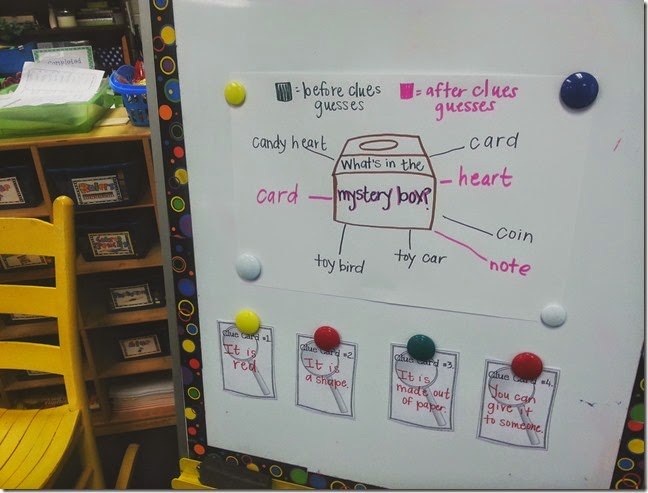 = before clues guesses
= after clues guesses
candy heart
card
What's in the
mystery box?
card
heart
coin
note
toy bird
toy car
Clue Card #1
It is
red
Clue Card #2
It is
a shape.
Clue Card #3
It is
made out
of paper.
Clue Card #4
You can
give it
to someone.
Completed